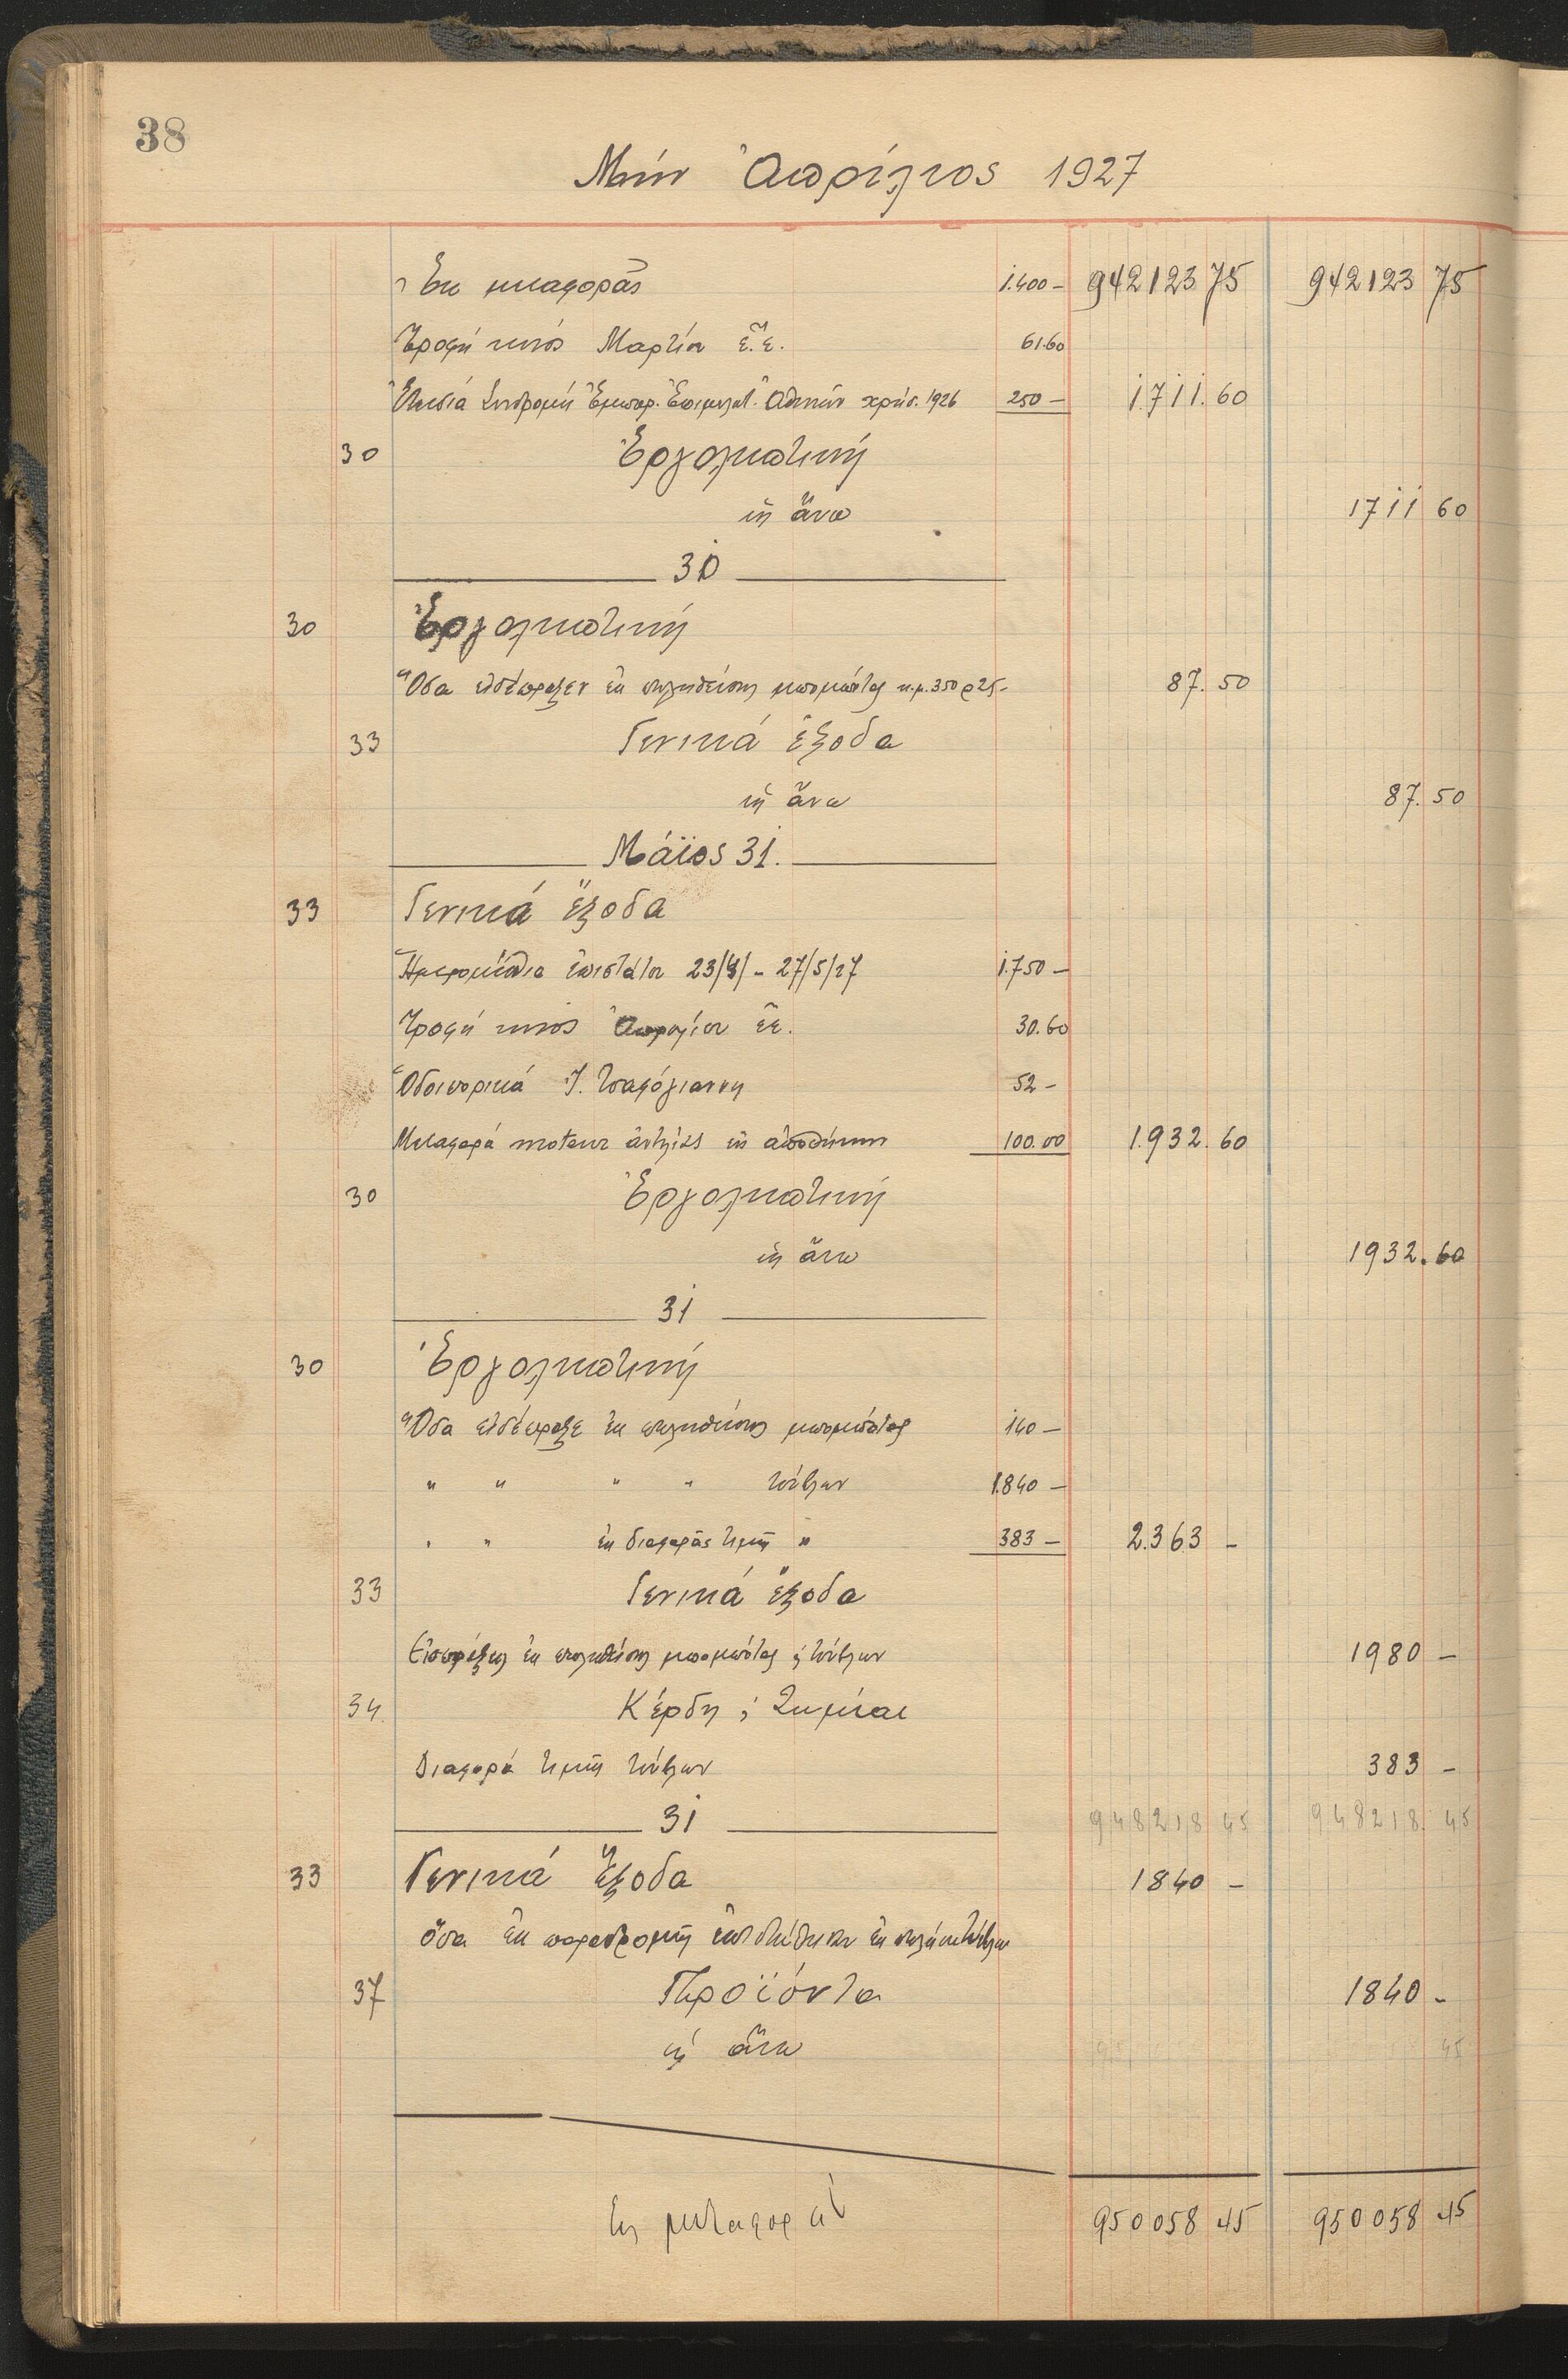 38
Μήν Ἀπρίλιος 1927
Ἐκ μεταφορᾶς 1.400 – 942123 75 942123 75
Τροφή κυνός Μαρτίου ἐ.ἐ. 61.60
Ἐτησία Συνδρομή Ἐμπορ. Ἐπιμελητ. Ἀθηνῶν χρήσ. 1926 250 – 1.711.60
30 Ἐργοληπτική
ὡς ἄνω 1711 60
30
30 Ἐργοληπτική
Ὅσα εἰσέπραξεν ἐκ πωληθείσης μπομπότας 87.50
33 Γενικά ἔξοδα
ὡς ἄνω 87.50
Μάϊος 31.
33 Γενικά ἔξοδα
Ἡμερομίσθια ἐπιστάτου 23/4/ – 27/5/27 1.750 –
Τροφή κυνός Ἀπριλίου ἐ.ἐ. 30.60
Ὁδοιπορικά Ι. Τσαφόγιαννη 52 –
Μεταφορά moteur ἀντλίας εἰς ἀποθήκην 100.00 1.932.60
30 Ἐργοληπτική
ὡς ἄνω 1932.60
31
30 Ἐργοληπτική
Ὅσα εἰσέπραξε ἐκ πωληθείσης μπομπότας 140 –
" " " " τούβλων 1.840 –
" " ἐκ διαφορᾶς τιμῆς " 383 – 2.363 –
33 Γενικά ἔξοδα
Εἰσπράξεις ἐκ πωληθείσης μπομπότας & τούβλων 1980 –
34 Κέρδη & Ζημίαι
Διαφορά τιμῆς τούβλων 383 –
31 948218 45 948218 45
33 Γενικά Ἔξοδα 1840 –
ὅσα ἐκ παραδρομῆς ἐκ τούβλων
37 Προϊόντα 1840 –
ὡς ἄνω
Εἰς μεταφοράν 950058 45 950058 45